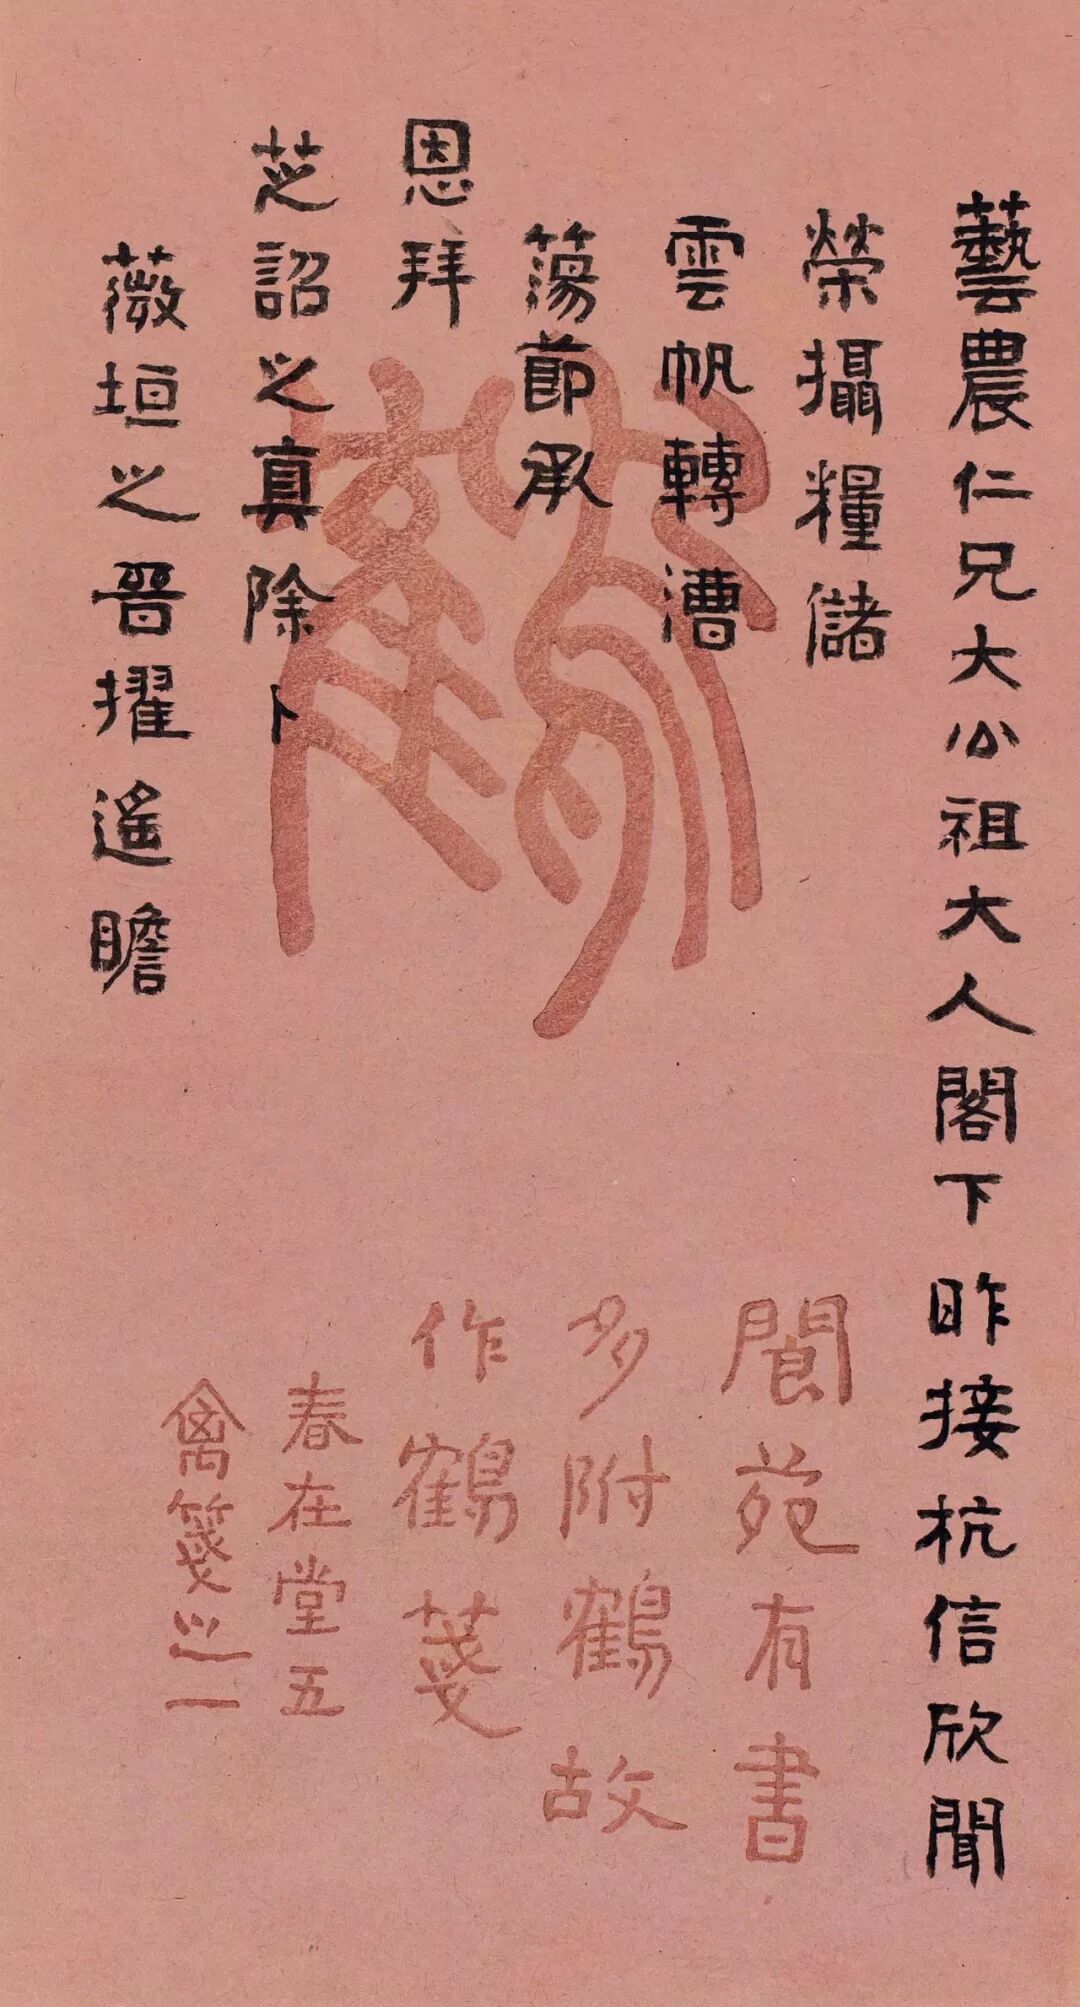 藝農仁兄大公祖大人閣下昨接杭信欣聞
榮攝糧儲
雲帆轉漕
蕩節承
恩拜
芝詔之真除卜
薇垣之晉擢遙瞻
閬苑有書
多附鶴故
作鶴箋
春在堂五
禽箋之一